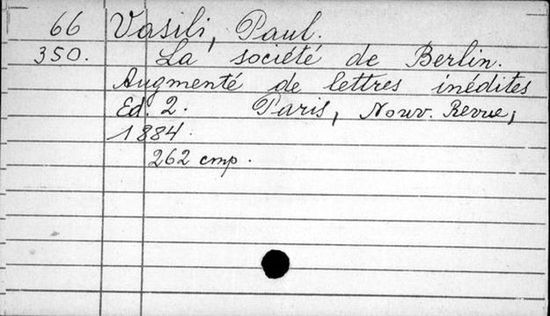 66 Vasili, Paul.
350. La société de Berlin.
Augmenté de lettres inédites
Ed. 2. Paris, Nouv. Revue,
1884.
262 стр.